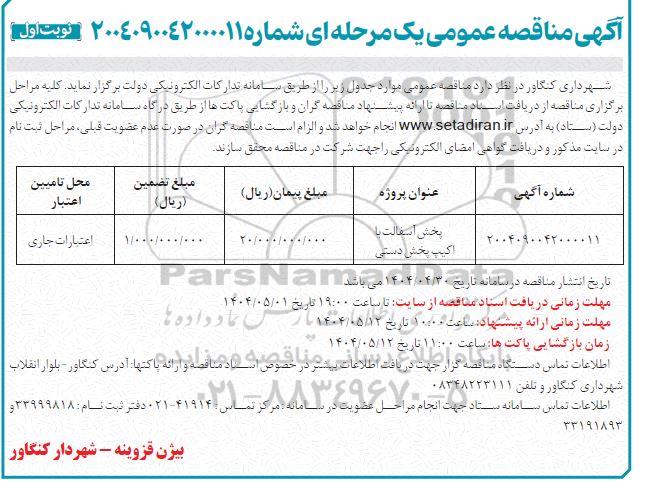 آگهی مناقصه عمومی یک مرحله ای شماره ۲۰۰۴۰۹۰۰۴۲۰۰۰۰۱۱
نوبت اول
شهرداری کنگاور در نظر دارد مناقصه عمومی موارد جدول زیر را از طریق سامانه تدارکات الکترونیکی دولت برگزار نماید. کلیه مراحل
برگزاری مناقصه از دریافت اسناد مناقصه تا ارائه پیشنهاد مناقصه گران و بازگشایی پاکت ها از طریق درگاه سامانه تدارکات الکترونیکی
دولت (ستاد) به آدرس www.setadiran.ir انجام خواهد شد و الزام است مناقصه گران در صورت عدم عضویت قبلی، مراحل ثبت نام
در سایت مذکور و دریافت گواهی امضای الکترونیکی را جهت شرکت در مناقصه محقق سازند.
شماره آگهی	عنوان پروژه	مبلغ پیمان(ریال)	مبلغ تضمین (ریال)	محل تامیین اعتبار
۲۰۰۴۰۹۰۰۴۲۰۰۰۰۱۱	پخش آسفالت با اکیپ پخش دستی	۲۰/۰۰۰/۰۰۰/۰۰۰	۱/۰۰۰/۰۰۰/۰۰۰	اعتبارات جاری
تاریخ انتشار مناقصه در سامانه تاریخ ۱۴۰۴/۰۴/۳۰ می باشد
مهلت زمانی دریافت اسناد مناقصه از سایت: تا ساعت ۱۹:۰۰ تاریخ ۱۴۰۴/۰۵/۰۱
مهلت زمانی ارائه پیشنهاد: ساعت ۱۰:۰۰ تاریخ ۱۴۰۴/۰۵/۱۲
زمان بازگشایی پاکت ها: ساعت ۱۱:۰۰ تاریخ ۱۴۰۴/۰۵/۱۲
اطلاعات تماس دستگاه مناقصه گزار جهت دریافت اطلاعات بیشتر در خصوص اسناد مناقصه و ارائه پاکتها: آدرس کنگاور - بلوار انقلاب
شهرداری کنگاور و تلفن ۰۸۳۴۸۲۲۳۱۱۱
اطلاعات تماس سامانه ستاد جهت انجام مراحل عضویت در سامانه : مرکز تماس : ۴۱۹۱۴-۰۲۱ دفتر ثبت نام : ۳۳۹۹۹۸۱۸ و
۳۳۱۹۱۸۹۳
بیژن قزوینه - شهردار کنگاور
ParsNamadData
۰۲۱-۸۸۳۴۹۶۷۰-۵